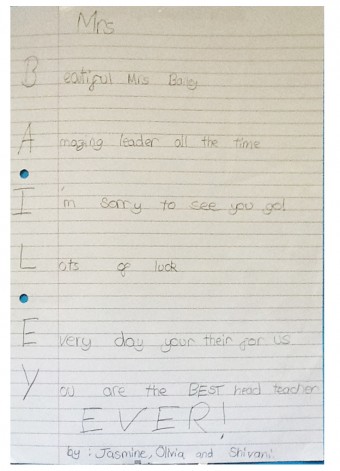 Mrs
Beatiful Mrs Bailey
Amazing leader all the time
I'm sorry to see you go!
Lots of luck
Every day your their for us
You are the BEST head teacher
EVER!
by: Jasmine, Olivia and Shivani.